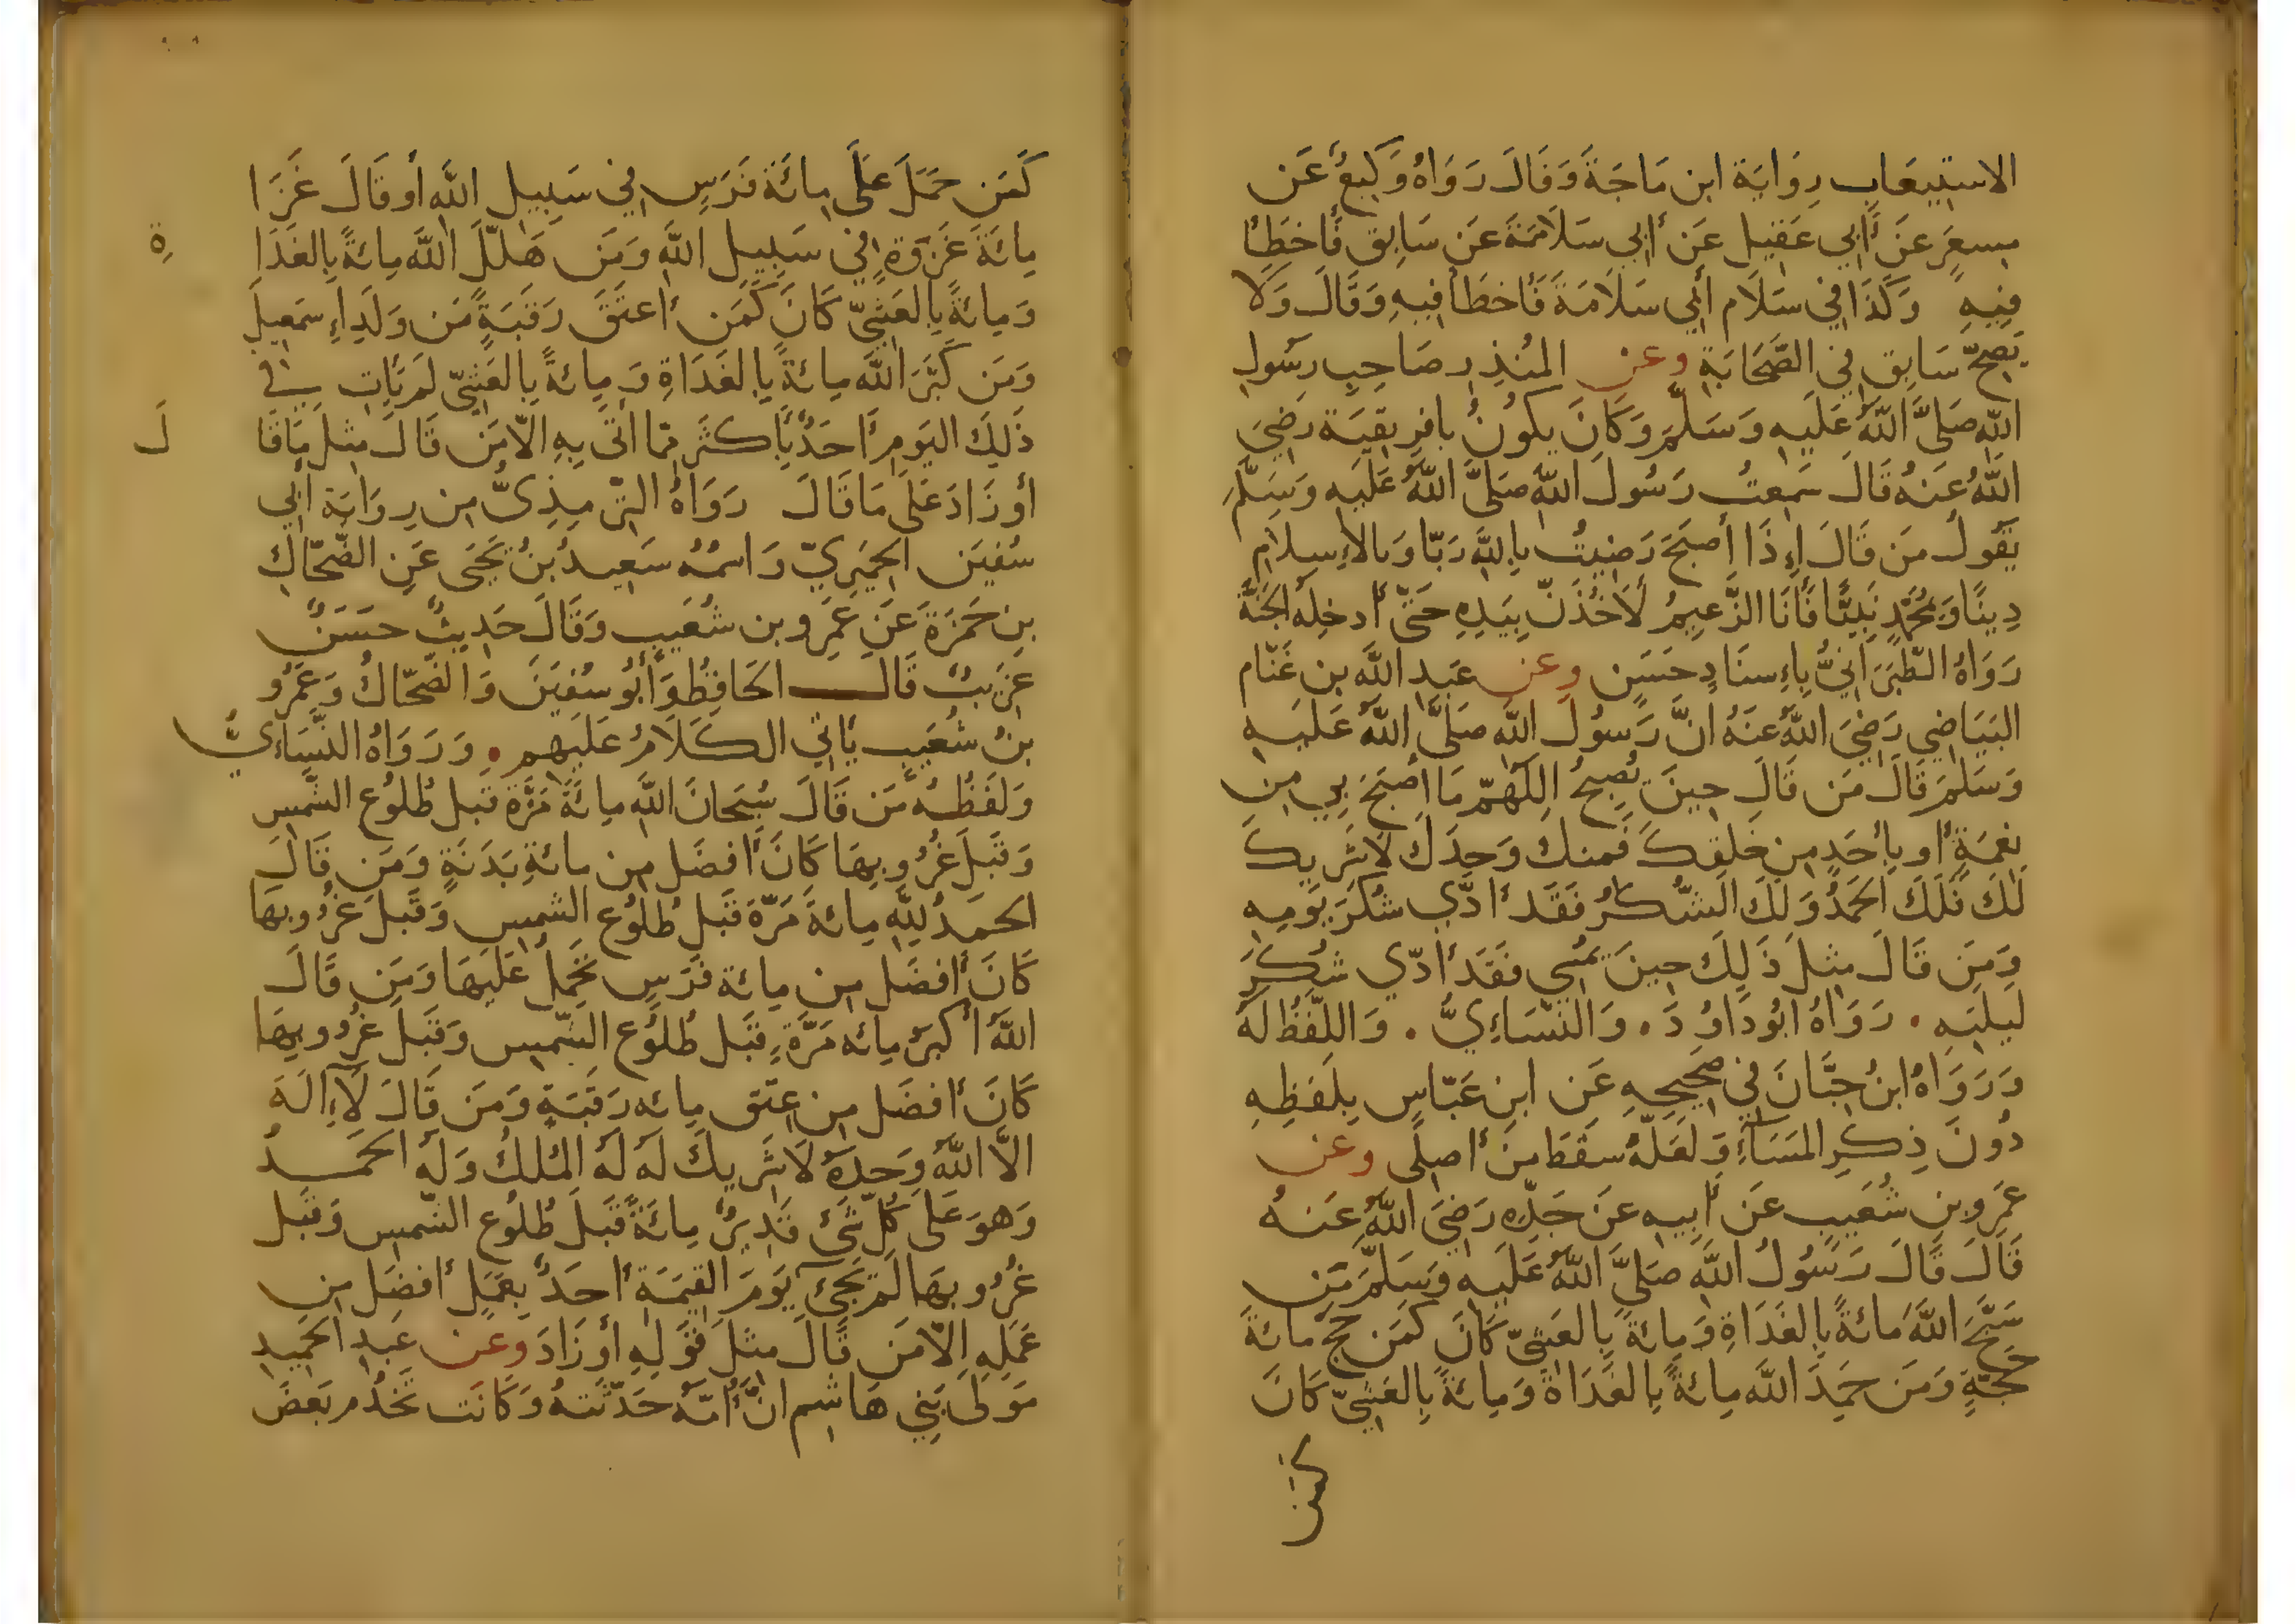 الاستيعاب رِوَايَة ابن مَاجَةَ وَقَالَ رَوَاهُ وَكِيعٌ عَن
مِسعَرٍ عَن أَبِي عَقِيلٍ عَن أَبِي سَلَامَةَ عَن سَابِقٍ فَأَخطَأَ
فِيهِ وَكَذَا فِي سَلَام أَبِي سَلَامَةَ فَأَخطَأَ فِيهِ وَقَالَ وَلَا
يَصِحّ سَابِق فِي الصَّحَابَةِ وعن المُنَذِرِ صَاحِبِ رَسُولِ
اللهِ صَلَّى اللهُ عَلَيهِ وَسَلَّمَ وَكَانَ يَكُونُ بِإفرِيقِيَة رَضِيَ
اللهُ عَنهُ قَالَ سَمِعتُ رَسُولَ اللهِ صَلَّى اللهُ عَلَيهِ وَسَلَّمَ
يَقُولُ مَن قَالَ إِذَا أَصبَحَ رَضِيتُ بِاللهِ رَبّا وَبِالإِسلَامِ
دِينًا وَبِمُحَمَّدٍ نَبِيًّا فَأَنَا الزَّعِيمُ لَآخُذَنّ بِيَدِهِ حَتَّى أُدخِلهُ الجَنَّةَ
رَوَاهُ الطَّبَرَانِيُّ بِإِسنَادٍ حَسَنٍ وعن عَبدِ اللهِ بن غَنّام
البَيَاضِي رَضِيَ اللهُ عَنهُ انَّ رَسُولَ اللهِ صَلَّى اللهُ عَلَيهِ
وَسَلَّمَ قَالَ مَن قَالَ حِينَ يُصبِحُ اللّهُمّ مَا أَصبَحَ بِي مِن
نِعمَةٍ أَو بِأَحَدٍ مِن خَلقِكَ فَمِنكَ وَحدَكَ لَا شَرِيكَ
لَكَ فَلَكَ الحَمدُ وَلَكَ الشُّكرُ فَقَد أَدَّى شُكرَ يَومِهِ
وَمَن قَالَ مِثلَ ذَلِكَ حِينَ يُمسِي فَقَد أَدَّى شُكرَ
لَيلَتِهِ . رَوَاهُ ابُو دَاوُدَ . وَالنَّسَاءِيُّ . وَاللّفظُ لَهُ
وَرَوَاهُ ابنُ حِبَّانَ فِي صَحِيحِهِ عَن ابنِ عَبّاسٍ بِلَفظِهِ
دُونَ ذِكرِ المَسَاءِ وَلَعَلّهُ سَقَطَ مِن أَصلِي وعن
عَمرِو بنِ شُعَيبٍ عَن أَبِيهِ عَن جَدِّهِ رَضِيَ اللهُ عَنهُ
قَالَ قَالَ رَسُولُ اللهِ صَلَّى اللهُ عَلَيهِ وَسَلَّمَ مَن
سَبَّحَ اللهَ مِائَةً بِالغَدَاةِ وَمِائَةً بِالعَشِيِّ كَانَ كَمَن حَجّ مِائَةَ
حَجّةٍ وَمَن حَمِدَ اللهَ مِائَةً بِالغَدَاة وَمِائَةً بِالعَشِيِّ كَانَ
كمن
كَمَن حَمَلَ عَلَى مِائَةِ فَرَسٍ فِي سَبِيلِ اللهِ أَو قَالَ غَزَا
مِائَةَ غَزوَةٍ فِي سَبِيلِ اللهِ وَمَن هَلّلَ اللهَ مِائَةً بِالغَدَا
ةِ
وَمِائَةً بِالعَشِيّ كَانَ كَمَن أَعتَقَ رَقَبَةً مِن وَلَدِ إِسمَعِيلَ
وَمَن كَبَّرَ اللهَ مِائَةً بِالغَدَاةِ وَمِائَةً بِالعَشِيّ لَم يَأتِ فِي
ذَلِكَ اليَومِ أَحَدٌ بِأَكثَرَ مِمّا أَتَى بِهِ الّا مَن قَالَ مِثلَ مَا قَا
لَ
أَو زَادَ عَلَى مَا قَالَ رَوَاهُ التِّرمِذِيُّ مِن رِوَايَة أَبِي
سُفيَن الحِميَرِيّ وَاسمُهُ سَعِيدُ بنُ يَحيَى عَنِ الضَّحّاك
بنِ حَمزَةَ عَن عَمرِو بن شُعَيبٍ وَقَالَ حَدِيثٌ حَسَنٌ
غَرِيبٌ قَالَ الحَافِظُ وَأَبُو سُفيَنَ وَالضَّحّاكُ وَعَمرُو
بنُ شُعَيبٍ يَأتِي الكَلَامُ عَلَيهِم . وَرَوَاهُ النَّسَاءِيُّ
وَلَفظُهُ مَن قَالَ سُبحَانَ اللهِ مِائَةَ مَرَّةٍ قَبلَ طُلُوعِ الشَّمسِ
وَقَبلَ غُرُوبِهَا كَانَ أَفضَلَ مِن مِائَةِ بَدَنَةٍ وَمَن قَالَ
الحمدُ لِلّهِ مِائَةَ مَرّةَ قَبلَ طُلُوعِ الشمسِ وَقَبلَ غُرُوبِهَا
كَانَ أَفضَل مِن مِائَة فَرَسٍ يُحمَلُ عَلَيهَا وَمَن قَالَ
اللهُ أَكبَرُ مِائَه مَرَّةٍ قَبلَ طُلُوعِ الشّمسِ وَقَبلَ غُرُوبِهَا
كَانَ أَفضَلَ مِن عِتقِ مِائه رَقَبَةٍ وَمَن قَالَ لَا إِلَهَ
الَّا اللهُ وَحدَهُ لَا شَرِيكَ لَه لَهُ المُلكُ وَلَهُ الحَمدُ
وَهوَ عَلَى كُلّ شَيْءٍ قَدِيرٌ مِائَةً قَبلَ طُلُوعِ الشّمسِ وَقَبل
غُرُوبِهَا لَم يَجِئ يَومَ القِيمَةِ أَحَدٌ بِعَمَلٍ أَفضَلَ مِن
عَمَلِهِ الّا مَن قَالَ مِثلَ قَولِهِ أَو زَادَ وعن عَبدِ الحَمِيدِ
مَولَى بَنِي هَاشِم انَّ أُمّهُ حَدَّثَتهُ وَكَانَت تَخدُم بَعضَ